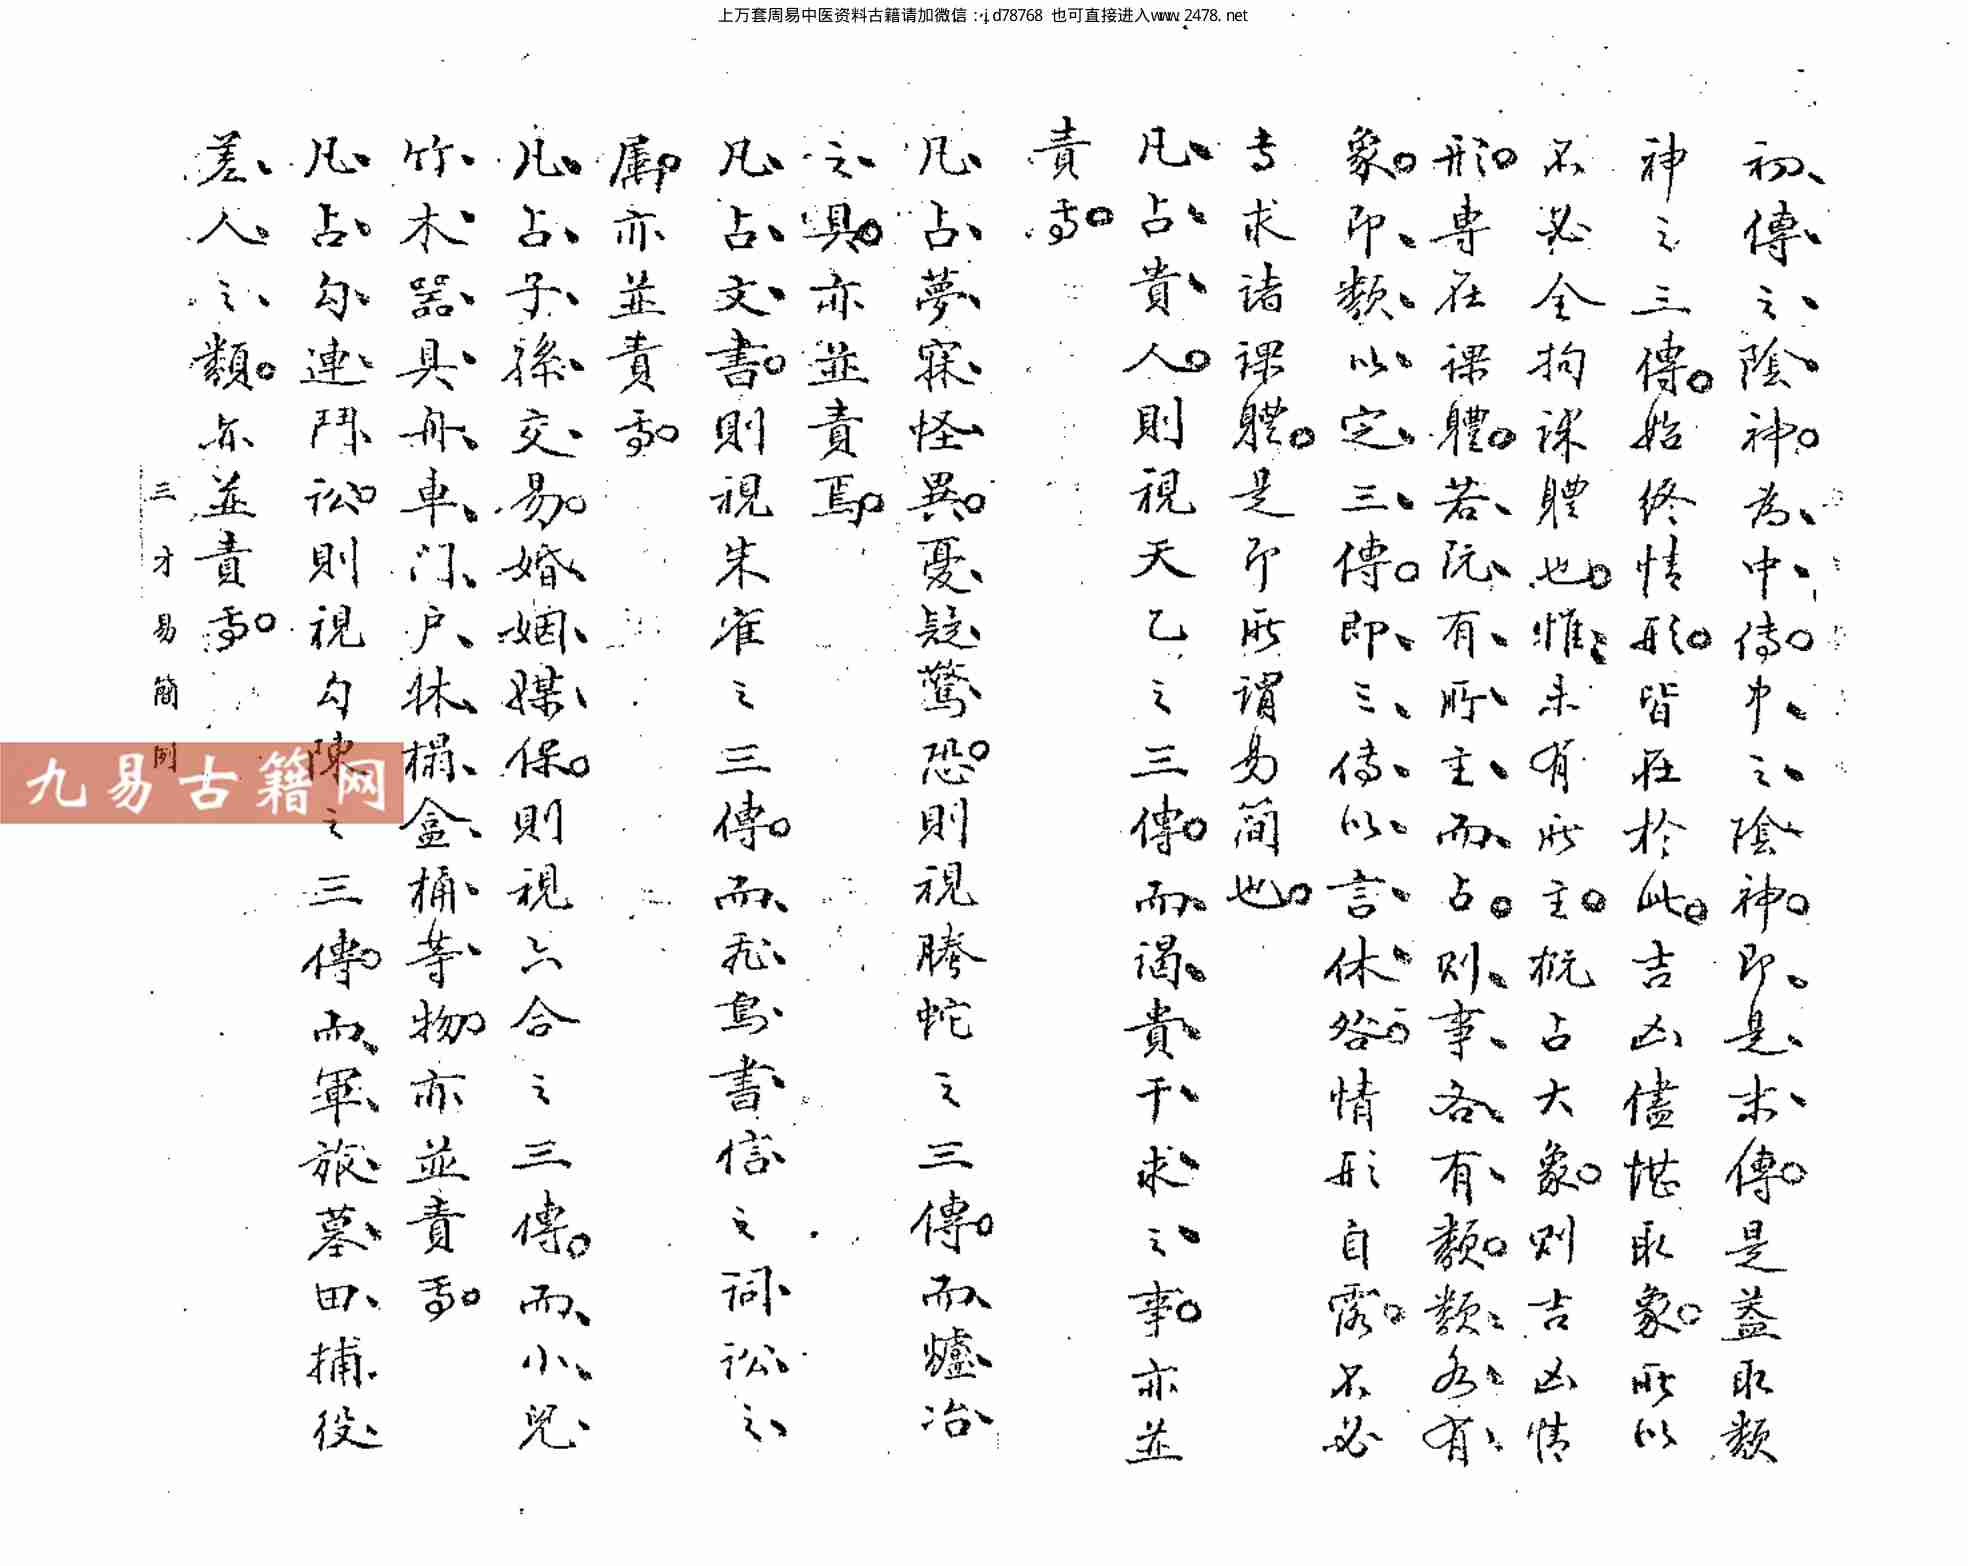 上万套周易中医资料古籍请加微信：jd78768 也可直接进入www.2478.net
初傳之陰神為中傳中之陰神即是末傳是蓋取類
神之三傳始終情形皆在於此吉凶儘堪取象所以
不必全拘課體也惟未有所主概占大象则吉凶情
形專在课體若阮有所主而占则事各有類類類各有
象即類以定三傳即三传以言休咎情形自露不必
专求諸课體是即所謂易簡也
凡占貴人則視天乙之三傳而谒貴干求之事亦並
責焉
凡占夢寐怪異憂疑驚恐則視騰蛇之三傳而爐冶
之具亦並責焉
凡占文書則視朱雀之三傳而飛鳥書信之詞訟之
屬亦並責焉
凡占子孫交易婚姻媒保則視六合之三傳而小兒
竹木器具舟車门户牀榻盒桶等物亦並責焉
凡占勾連鬥訟則視勾陳之三傳而軍旅墓田捕役
差人之類亦並責焉
三才易簡例
九易古籍网